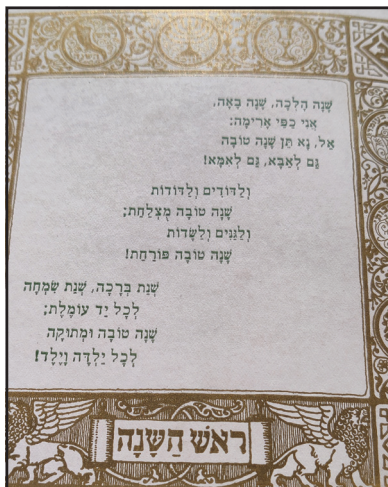 שָׁנָה הָלְכָה, שָׁנָה בָּאָה,
אֲנִי כַפַּי אָרִימָה:
אֵל, נָא תֵּן שָׁנָה טוֹבָה
גַּם לְאַבָּא, גַּם לְאִמָּא!
וְלַדּוֹדִים וְלַדּוֹדוֹת
שָׁנָה טוֹבָה מְצֻלַּחַת;
וְלַגַּנִּים וְלַשָּׂדוֹת
שָׁנָה טוֹבָה פּוֹרַחַת!
שְׁנַת בְּרָכָה, שְׁנַת שִׂמְחָה
לְכָל יַד עוֹמֶלֶת;
שָׁנָה טוֹבָה וּמְתוּקָה
לְכָל יַלְדָּה וָיֶלֶד!
רֹאשׁ הַשָּׁנָה